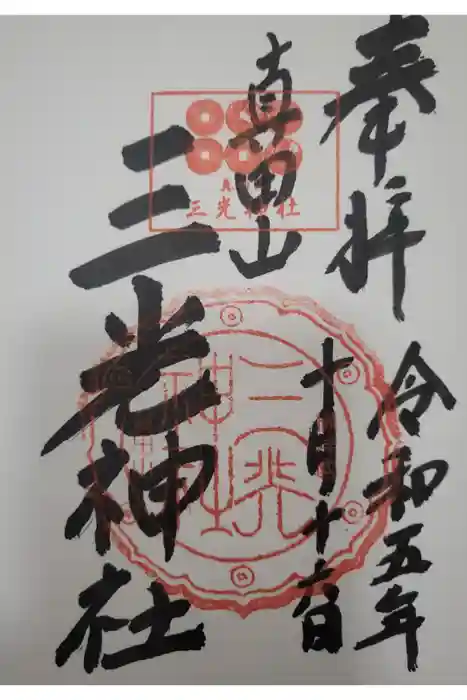 奉拝
令和五年
十月十六日
真田山
三光神社
三光神社